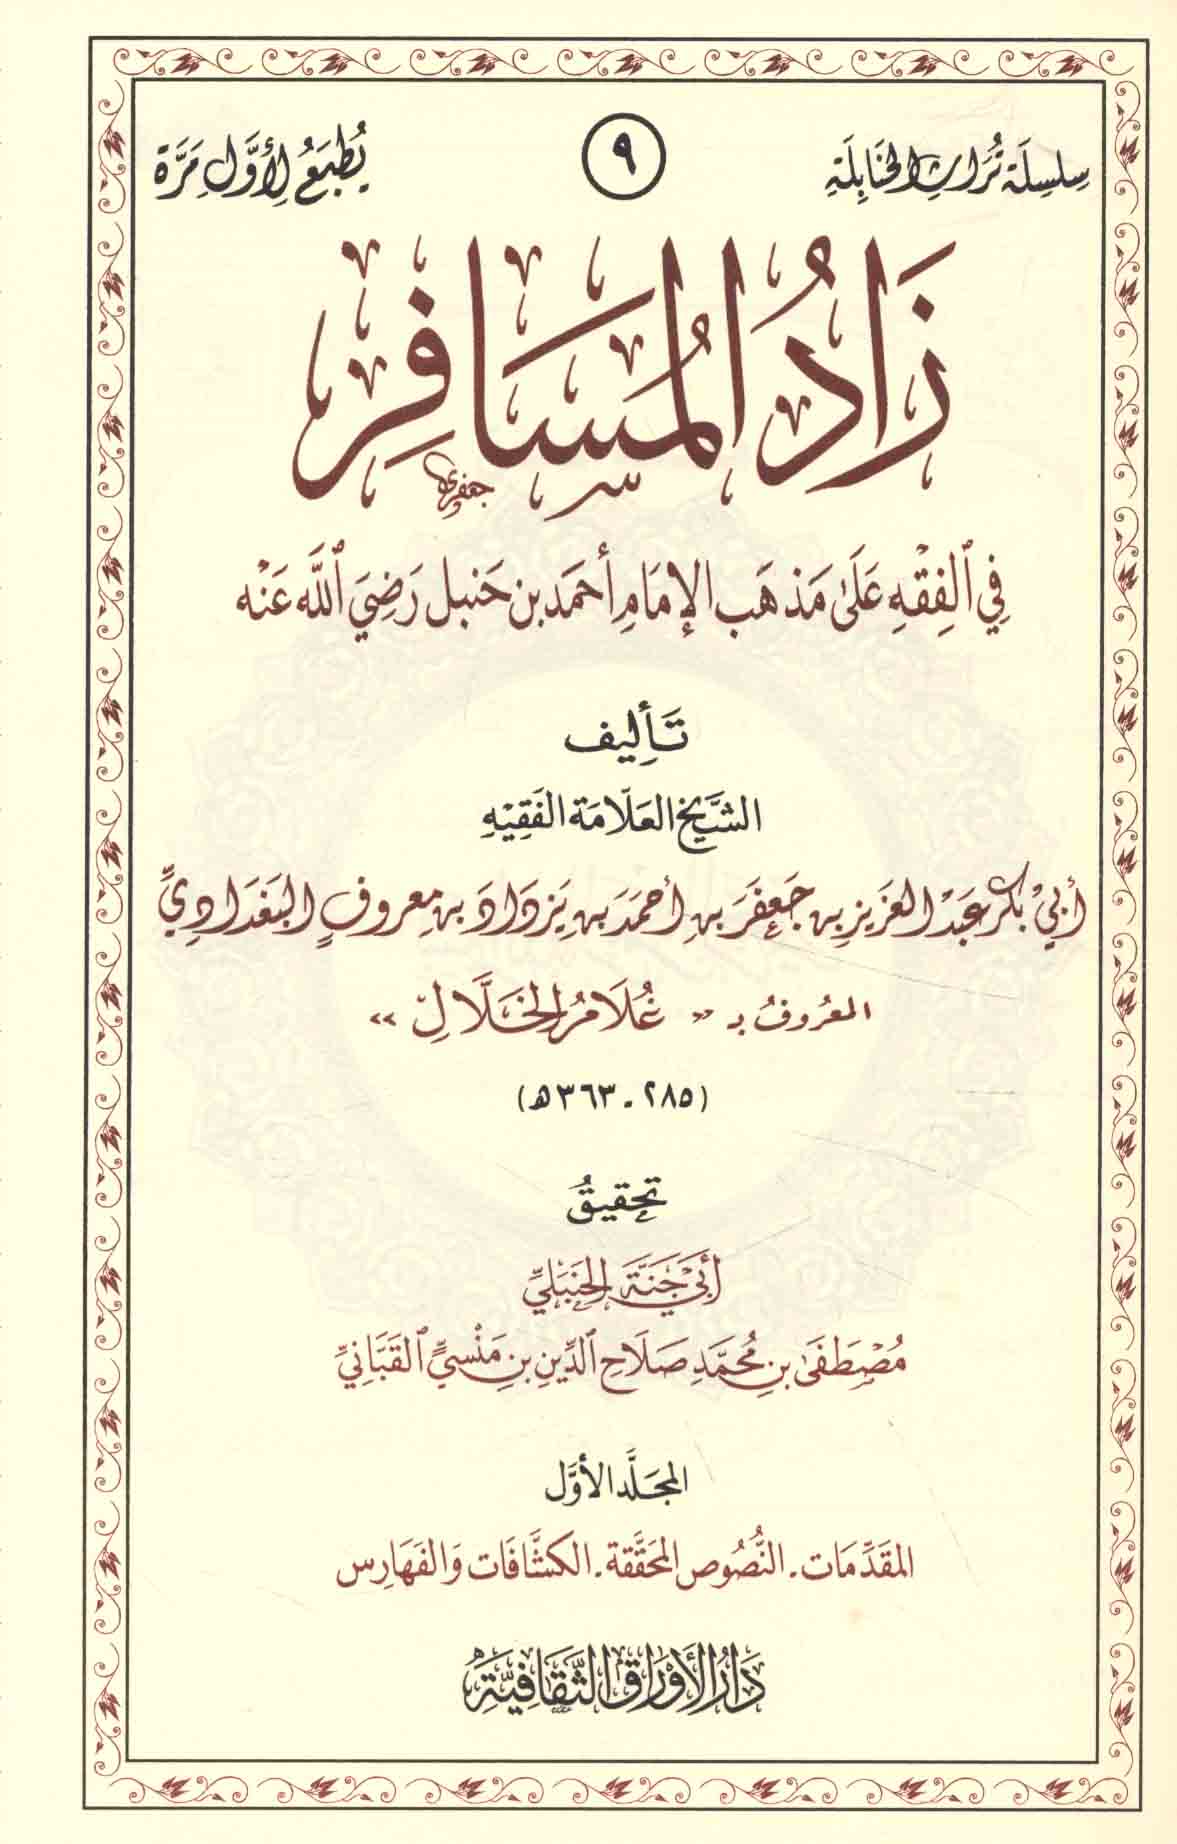 سلسلة تراث الحنابلة
٩
يُطبَعُ لِأوَّلِ مَرَّة
زَادُ المُسَافِر
جعفري
في ٱلفِقْهِ عَلَى مَذهَب الإمَامِ أحمَد بن حَنبل رَضِيَ ٱللَّه عَنْه
تَأليف
الشَّيخ العَلّامَة الفَقِيْهِ
أبيْ بكر عَبْد العَزيز بن جَعفَر بن أحمَدَ بن يَزدَادَ بن معروفٍ البَغدَادِيِّ
المعرُوفُ بـ « غُلَامُ الخَلَّالِ »
(٢٨٥ - ٣٦٣ هـ)
تحقيقُ
أبيْ جَنَّةَ الحَنبَليِّ
مُصْطَفَى بنِ مُحمَّدِ صَلَاحِ ٱلدِّينِ بنِ مَنْسيٍّ ٱلقَبَّانيِّ
المجَلَّد الأوَّل
المقَدِّمَات - النُّصُوص المحَقَّقة - الكشَّافَات وَالفَهَارِس
دَارُ الأَوْرَاقِ الثَّقَافِيَّةِ